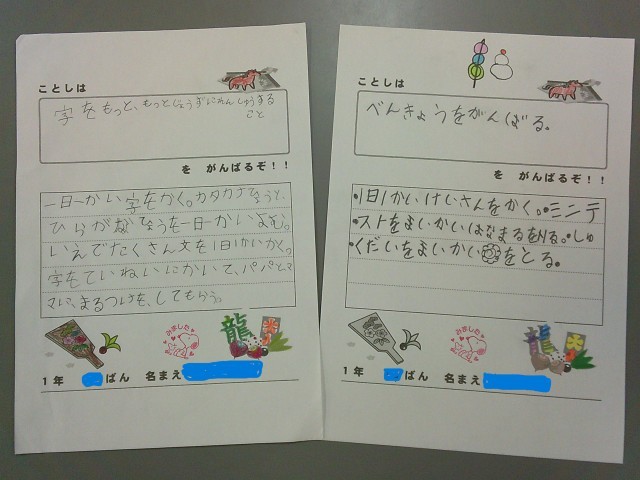 ことしは
字をもっと、もっとじょうずにれんしゅうする
こと
を がんばるぞ!!
一日一かい字をかく。カタカナひょうと、
ひらがなひょうを一日一かいよむ。
いえでたくさん文を1日1かいかく。
字をていねいにかいて、パパとマ
マに、まるつけを、してもらう。
みました
龍
1年 ばん 名まえ
ことしは
べんきょうをがんばる。
を がんばるぞ!!
・1日1かいけいさんをかく。・ミニテ
ストをまいかいはなまるをとる。・しゅ
くだいをまいかい をとる。
みました
龍
1年 ばん 名まえ